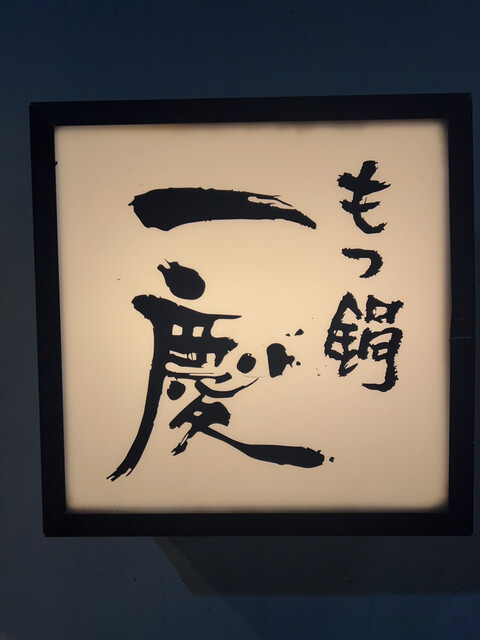 もつ鍋
一慶